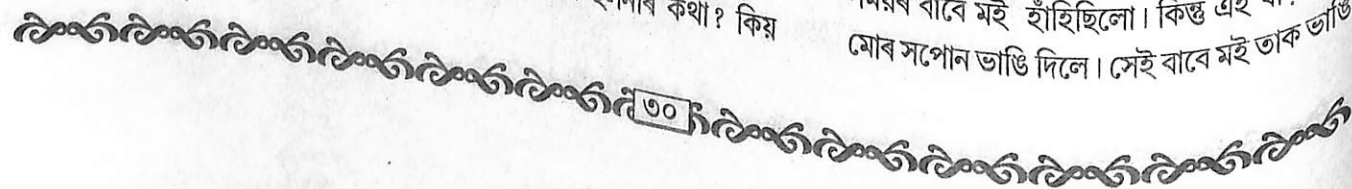 কথা? কিয়
বাবে মই হাঁহিছিলো। কিন্তু এই
মোৰ সপোন ভাঙি দিলে। সেই বাবে মই তাক ভাঙি
৩০